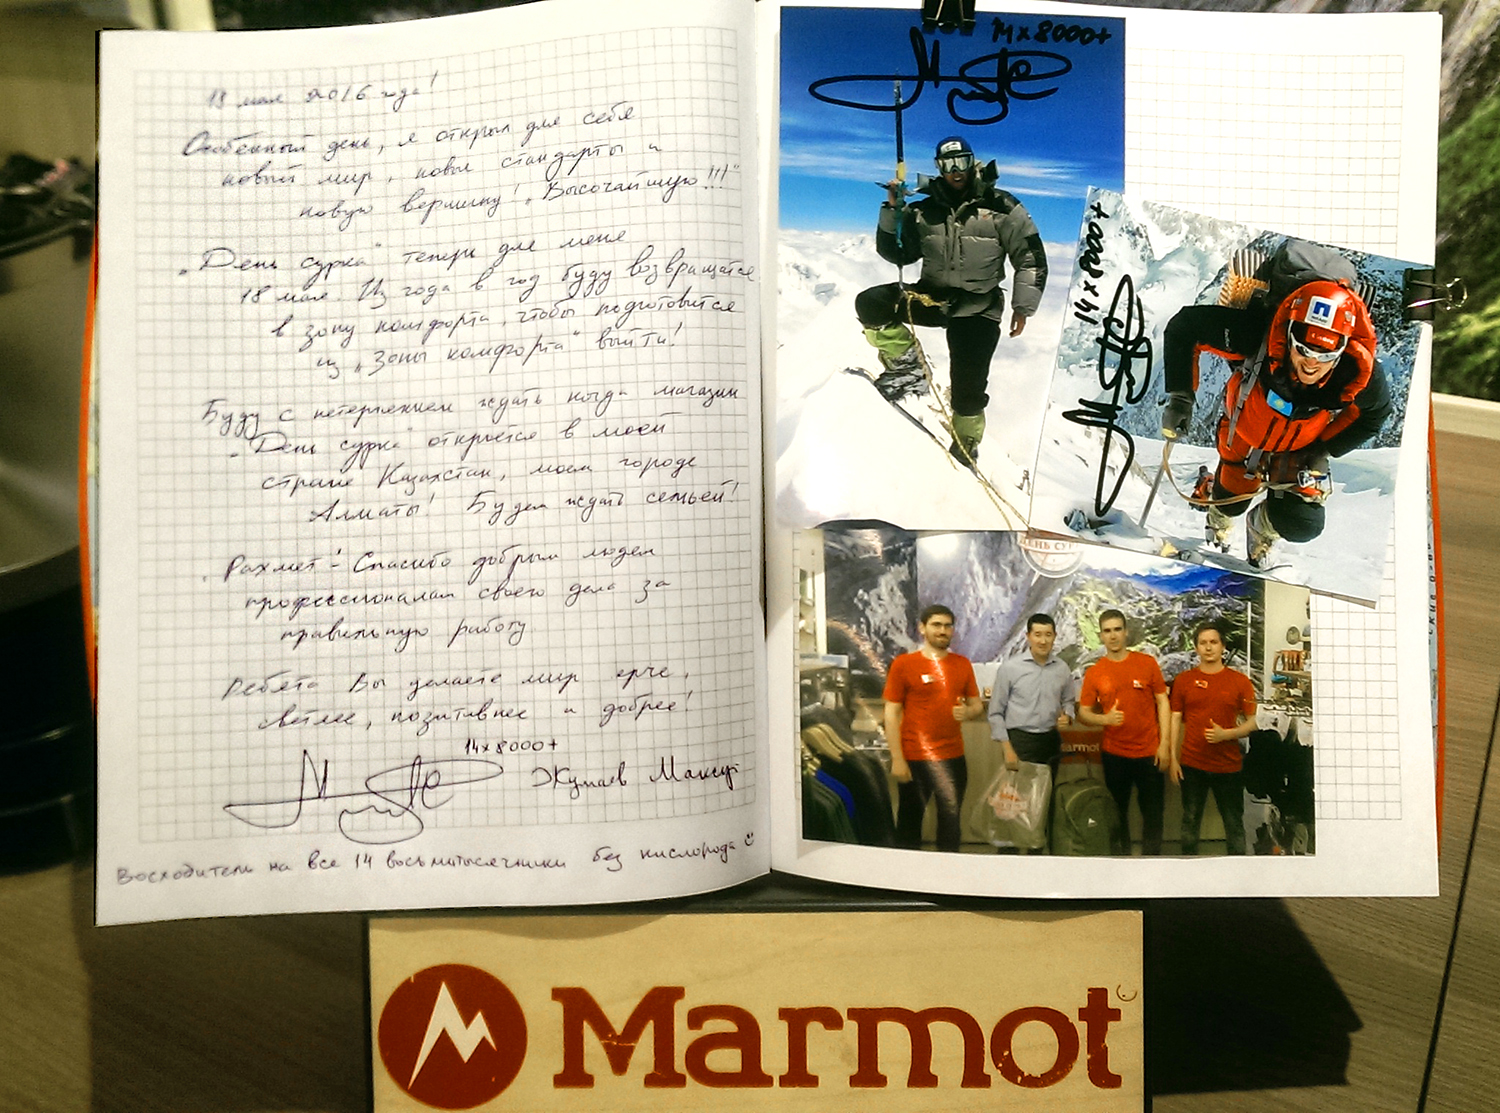 18 мая 2016 года!
Особенный день, я открыл для себя
новый мир, новые стандарты и
новую вершину! „Высочайшую!!!"
„День сурка" теперь для меня
18 мая. Из года в год буду возвращаться
в зону комфорта, чтобы подготовится
из „зоны комфорта" выйти!
Буду с нетерпением ждать когда магазин
„День сурка" откроется в моей
стране Казахстан, моем городе
Алматы! Будем ждать семьей!
„Рахмет" - Спасибо добрым людям
профессионалам своего дела за
правильную работу.
Ребята Вы делаете мир ярче,
светлее, позитивнее и добрее!
14x8000+
Жумаев Максут
Восходитель на все 14 восьмитысячники без кислорода
14x8000+
14x8000+
ДЕНЬ СУ
Marmot
Marmot